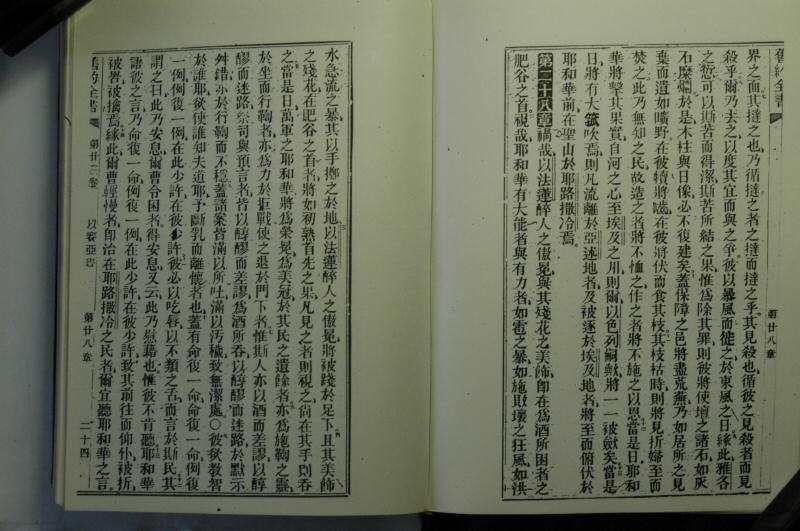 舊約全書
界之而其撻之也乃循撻之者之撻而撻之乎其見殺也循彼之見殺者而見
殺乎爾乃去之以度其宜而與之爭彼以暴風而徙之於東風之日緣此雅各
之愆可以斯苦而得潔斯苦所結之果惟為除其罪則彼將使壇之諸石如灰
石糜爛於是木柱與日像必不復建矣蓋保障之邑將盡荒蕪乃如居所之見
棄而遺如曠野在彼犢將噬在彼將伏而食其枝其枝枯時則將見折婦至而
焚之此乃無知之民故造之者將不恤之作之者將不施之以恩當是日耶和
華將擊其果實自河之心至埃及之用則爾以色列嗣歟將一一被歛矣當是
日將有大號吹焉則凡流離於亞述地者及被逐於埃及地者將至而俯伏於
耶和華前在聖山於耶路撒冷焉
第二十八章禍哉以法蓮醉人之傲冕與其殘花之美飾即在為酒所困者之
肥谷之首視哉耶和華有大能者與有力者如雹之暴如施敗壞之狂風如洪
第廿八章
水急流之暴其以手擲之於地以法蓮醉人之傲冕將被踐於足下且其美飾
之殘花在肥谷之首者將如初熟首先之果凡見之者則視之尚在其手則吞
之當是日萬軍之耶和華將為榮冕為美冠於其民之遺餘者亦為施鞫之靈
於坐而行鞫者亦為力於拒戰使之退於門下者惟斯人亦以酒而差謬以醇
醪而迷路祭司與預言者皆以醇醪而差謬為酒所吞以醇醪而迷路於默示
舛錯亦於行鞫而不穩蓋諸案皆滿以所吐滿以污穢致無潔處○彼欲教智
於誰耶欲使誰知夫道耶予斷乳而離懷者也蓋有命復一命命復一命例復
一例例復一例在此少許在彼少許彼必以吃唇以不類之舌而言於斯民其
謂之曰此乃安息爾曹令困者得安息又云此乃慰藉也惟彼不肯聽耶和華
語彼之言乃命復一命例復一例在此少許在彼少許致其前往而仰仆被折
被罟被擒焉緣此爾曹輕慢者即治在耶路撒冷之民者爾宜聽耶和華之言
舊約全書 第廿三卷 以賽亞書 第廿八章 二十四